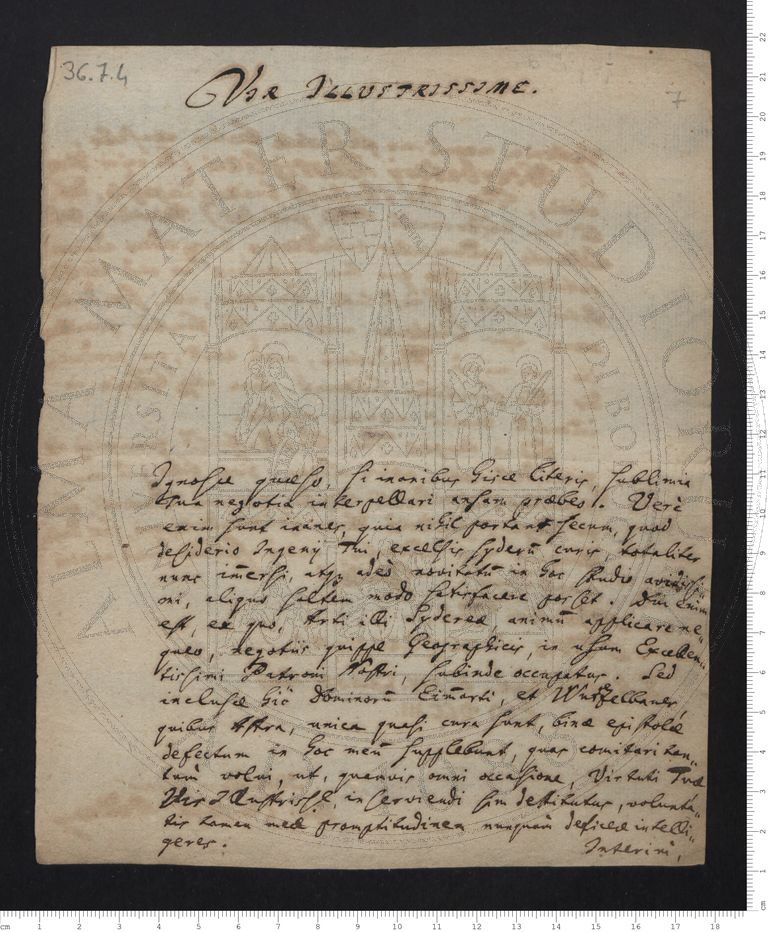 36.7.4
VIR ILLUSTRISSIME.
7
Ignosce quæso, si inanibus hisce literis, sublimia
tua negotia interpellari ansam præbeo. Verè
enim sunt inanes, quia nihil portant secum, quod
desiderio Ingenij Tui, excelsis syderũ curis, totaliter
nunc im̃ersi, atqꝫ adeò novitatũ in hoc studio avidissi„
mi, aliquo saltem modo satisfacere posset. Diu enim
est, ex quo, Arti illi Sydereæ, animũ applicare ne„
queo, negotiis quippe Geographicis, in usum Excellen„
tissimi Patroni Nostri, subinde occupatus. Sed
inclusæ hîc Dominorũ Eim̃arti, et Wurzelbaur,
quibus Astra, unica quasi cura sunt, binæ epistolæ
defectum in hoc meũ supplebunt, quas comitari tan„
tùm volui, ut, quamvis omni occasione, Virtuti Tuæ
Vir Illustrisse, in serviendi sim destitutus, volunta„
tis tamen meæ promptitudinem nunquam deficere intelli„
geres.
Interim,